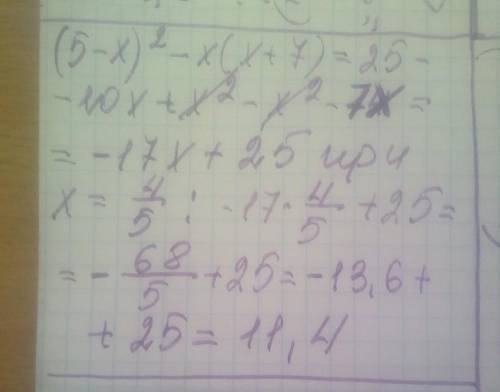 (5-x)² - x(x+7) = 25 -
- 10x + x² - x² - 7x =
= -17x + 25 при
x = 4/5 : -17 · 4/5 + 25 =
= - 68/5 + 25 = -13,6 +
+ 25 = 11,4